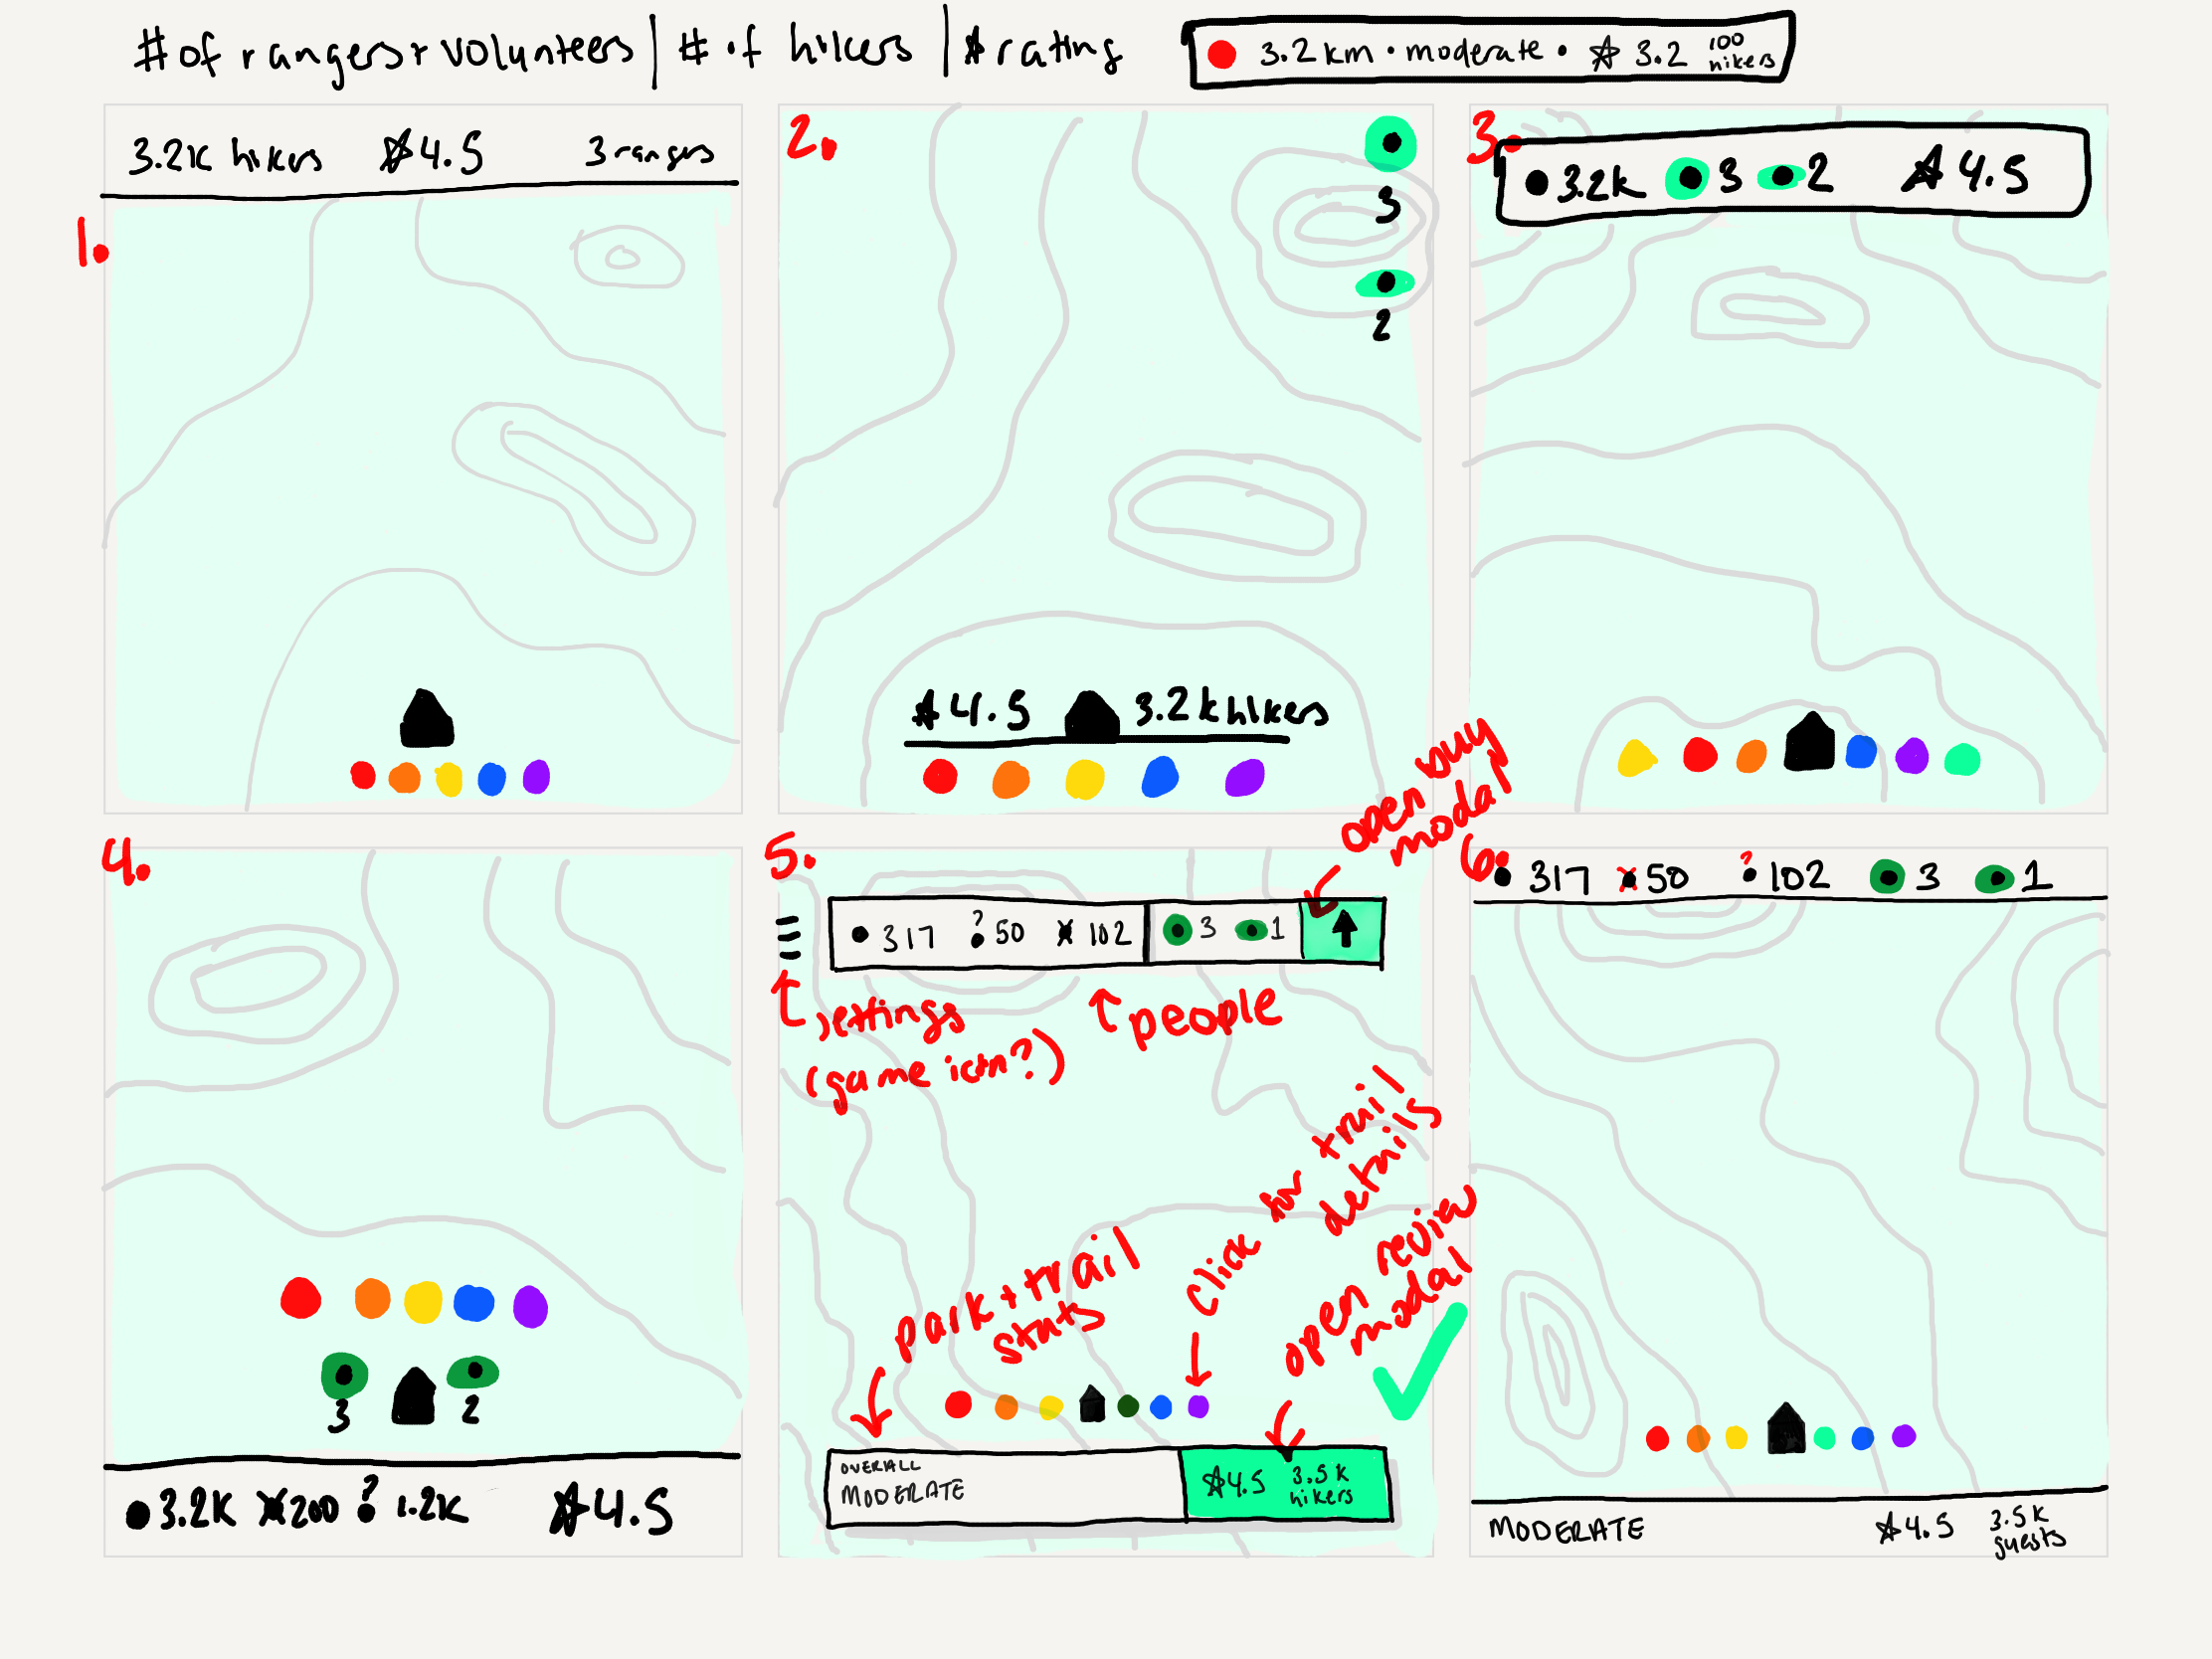 # of rangers + volunteers | # of hikers | ☆ rating
3.2 km • moderate • ☆ 3.2 100 hikers
1.
3.2K hikers ☆4.5 3 rangers
2.
3
2
☆4.5 3.2k hikers
3.
3.2k 3 2 ☆4.5
4.
3 2
3.2K x200 ? 1.2K ☆4.5
5.
open buy
modal
317 ? 50 x 102 3 1 ↑
settings
(game icon?)
people
park + trail
stats
click for trail
details
open review
modal
OVERALL
MODERATE
☆4.5 3.5k
hikers
6.
317 x 50 ? 102 3 1
MODERATE ☆4.5 3.5k
guests